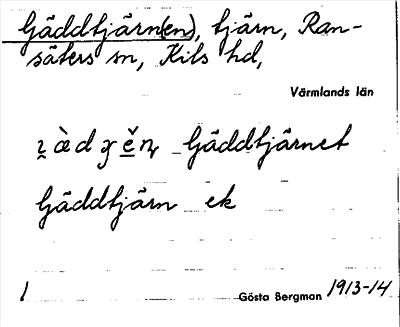 Gäddtjärn(en), tjärn, Ran-
säters sn, Kils hd,
Värmlands län
Gäddtjärnet
Gäddtjärn ek
1
Gösta Bergman 1913-14